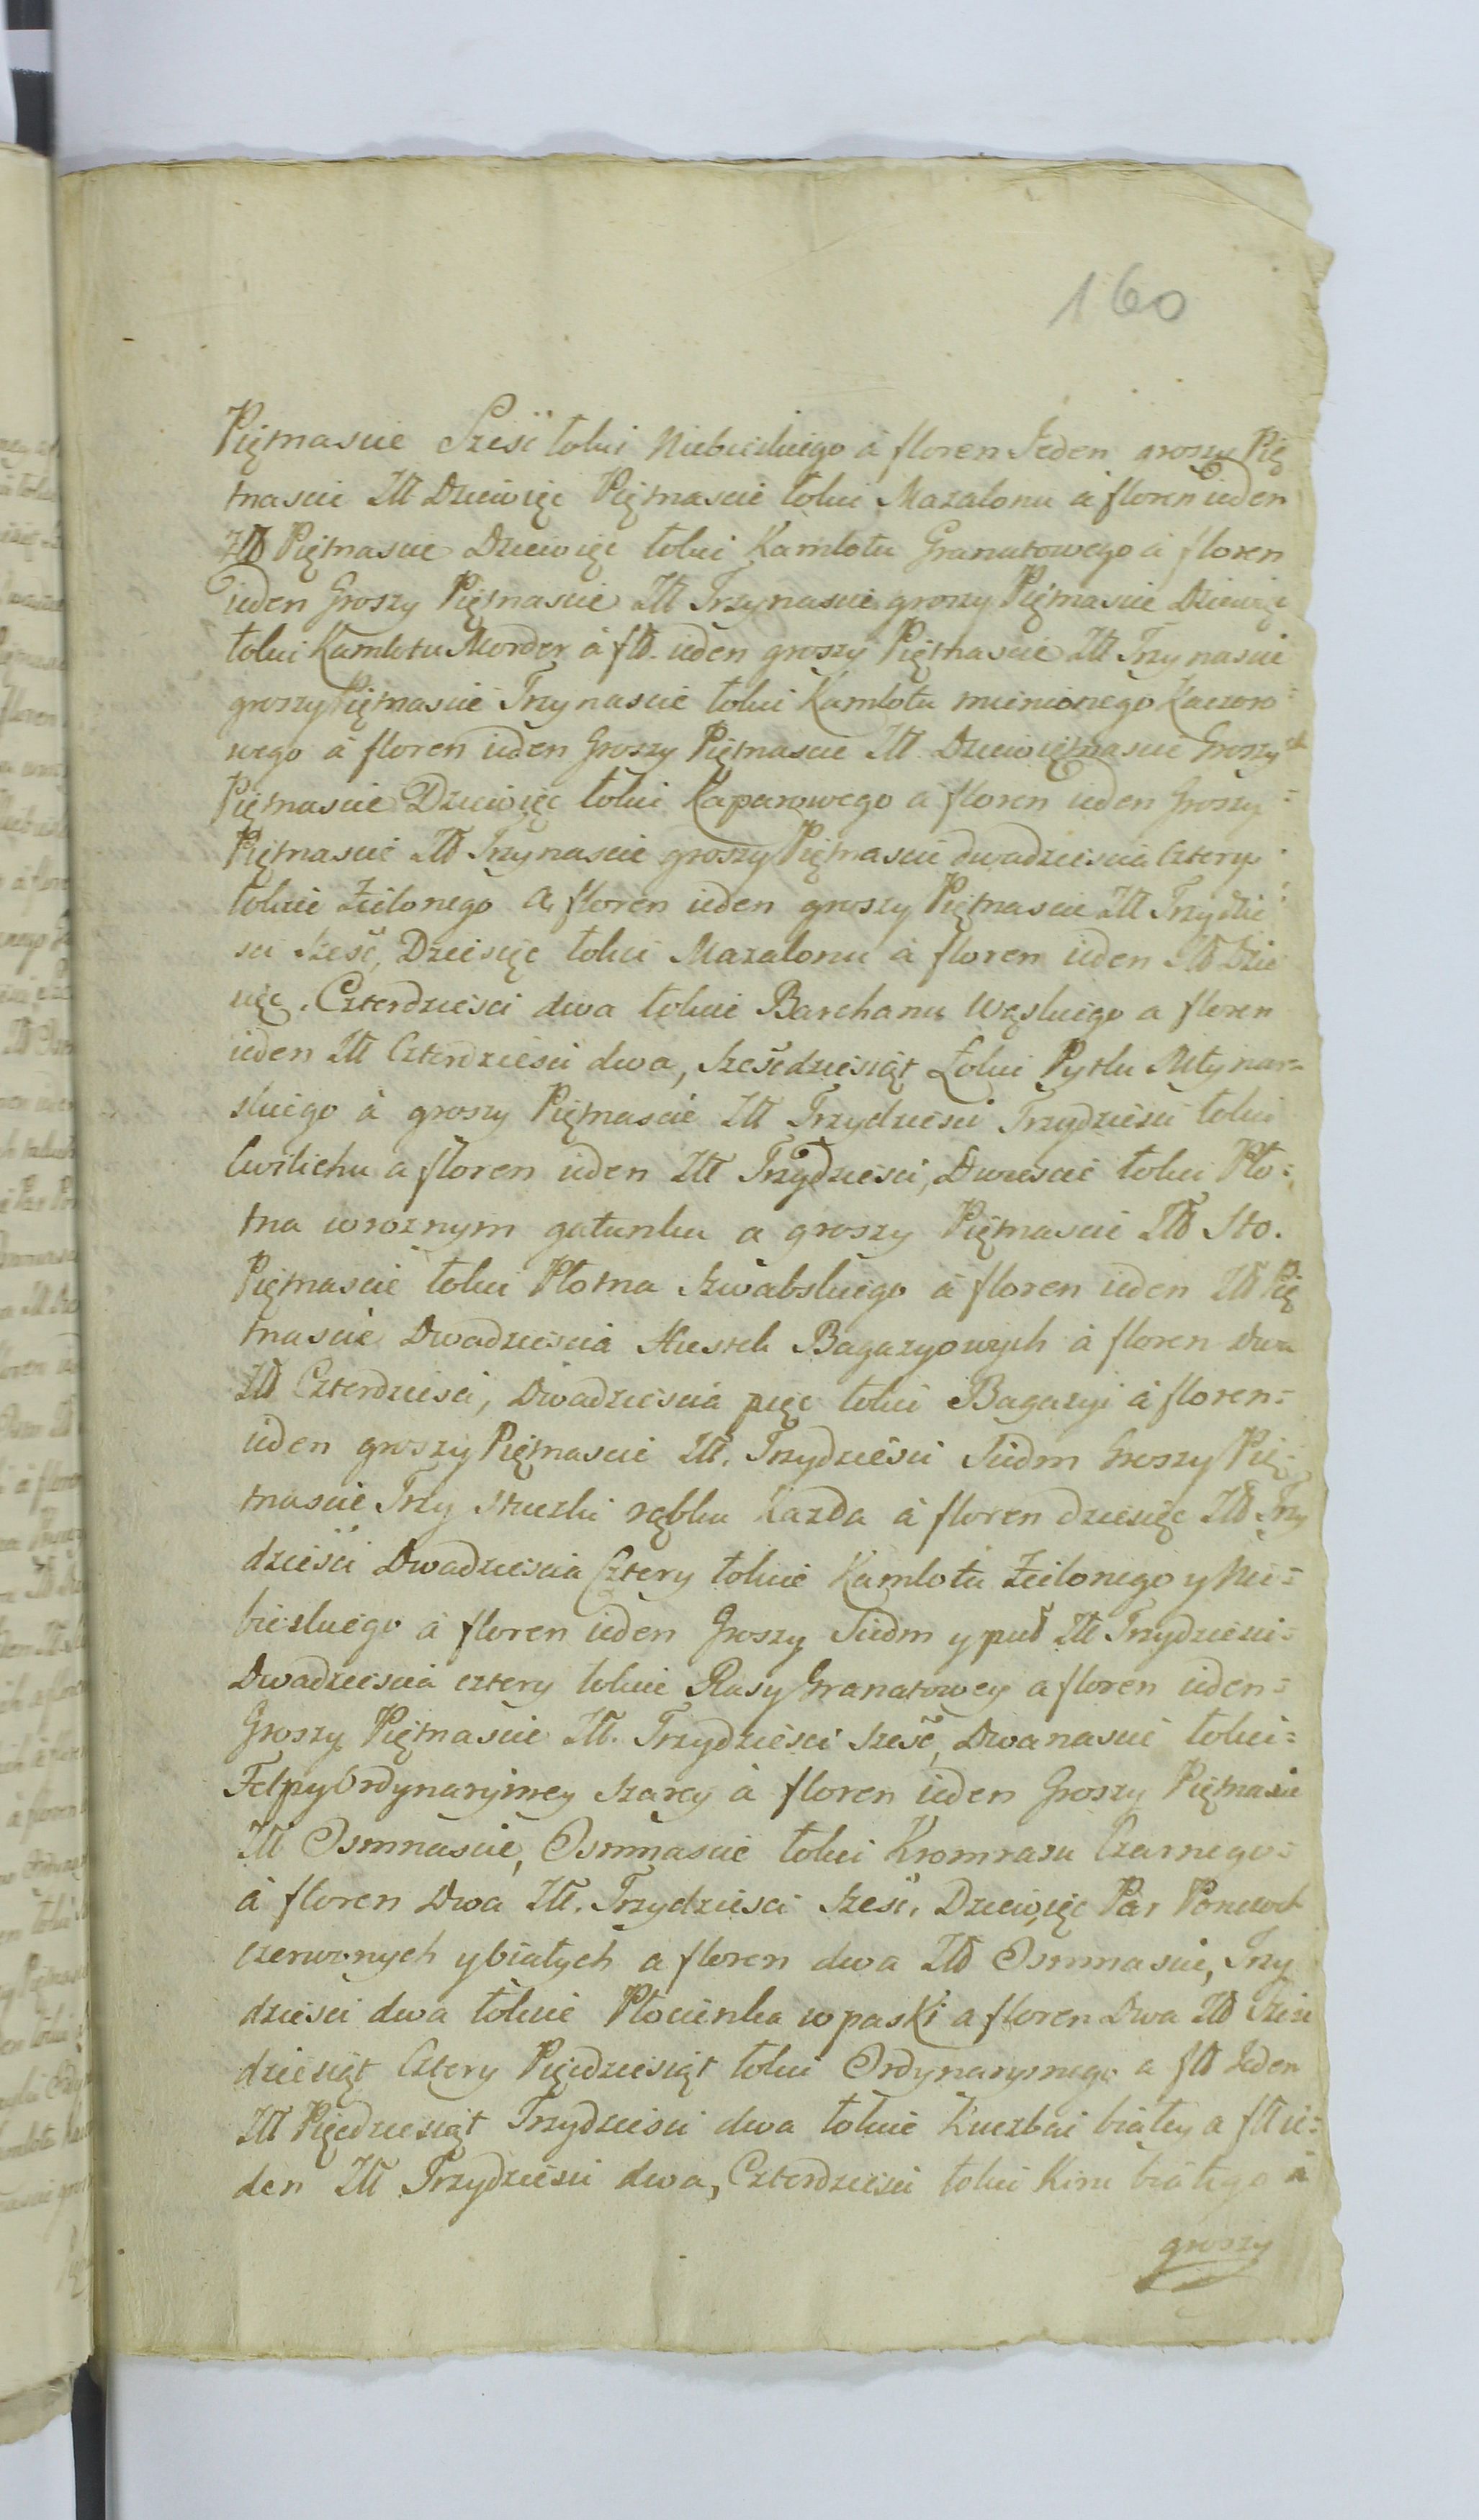 160
Piętnascie Sześć łokci Niebieskiego á floren Jeden groszy Pię
tnascie Złł Dziewięc Piętnascie łokci Mazalonu á floren ieden
Złł Piętnascie Dziewięc łokci Kamlotu Granatowego á floren
ieden Groszy Piętnascie Złł Trzynascie groszy Piętnascie Dziewięc
łokci Kamlotu Mordor á fłł. ieden groszy Piętnascie Złł Trzynascie
groszy Piętnascie Trzynascie łokci Kamlotu mienionego Kaczoro=
wego á floren ieden Groszy Piętnascie Złł Dziewiętnascie Groszy
Piętnascie Dziewięc łokci Kaparowego a floren ieden Groszy=
Piętnascie Złł Trzynascie groszy Piętnascie dwadziescia Cztery
łokcie Zielonego a floren ieden groszy Piętnascie Złł Trzydzie
sci sześć, Dziesięc łokci Mazalonu á floren ieden Złł Dzie
sięc. Czterdziesci dwa łokcie Barchanu Wąskiego a floren
ieden Złł Czterdziesci dwa, sześcdziesiąt Łokci Pytlu Młynar=
skiego á groszy Piętnascie Złł Trzydziesci Trzydziesci łokci
Cwilichu a floren ieden Złł Trzydziesci, Dwiescie łokci Pło=
tna wroznym gatunku a groszy Piętnascie Złł Sto.
Piętnascie łokci Płotna szwabskiego á floren ieden Złł Pię
tnascie Dwadziescia Hustek Bagazyowych á floren dwa
Złł Czterdziesci, Dwadziescia pięc łokci Bagazyi á floren=
ieden groszy Piętnascie Złł. Trzydziesci Siedm Groszy Pię=
tnascie Trzy Sztuczki rąbku Kazda á floren dziesięc Złł Trzy
dziesci Dwadziescia Cztery łokcie Kamlotu Zielonego y Nie=
bieskiego á floren ieden Groszy Siedm y puł Złł Trzydziesci=
Dwadziescia cztery łokcie Rasy Granatowey a floren ieden=
Groszy Piętnascie Złł. Trzydziesci sześć, Dwanascie łokci=
Felpy Ordynaryiney szarey á floren ieden Groszy Piętnascie
Złł Osmnascie, Osmnascie łokci Kromrasu Czarnego=
á floren Dwa Złł. Trzydziesci sześć, Dziewięc Par Ponczoch
czerwonych y białych a floren dwa Złł Osmnascie, Trzy
dziesci dwa łokcie Płocienka w paski a floren Dwa Złł Szesc
dziesiąt Cztery Pięcdziesiąt łokci Ordynaryinego a fłł Jeden
Złł Pięcdziesiąt Trzydziesci dwa łokcie Kuczbai białey a fłł ie=
den Złł Trzydziesci dwa, Czterdziesci łokci Kiru białego á
groszy